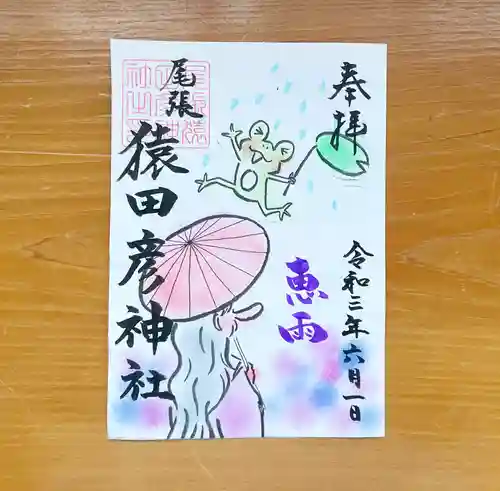 奉拝
令和三年六月一日
恵雨
尾張
猿田彦神社